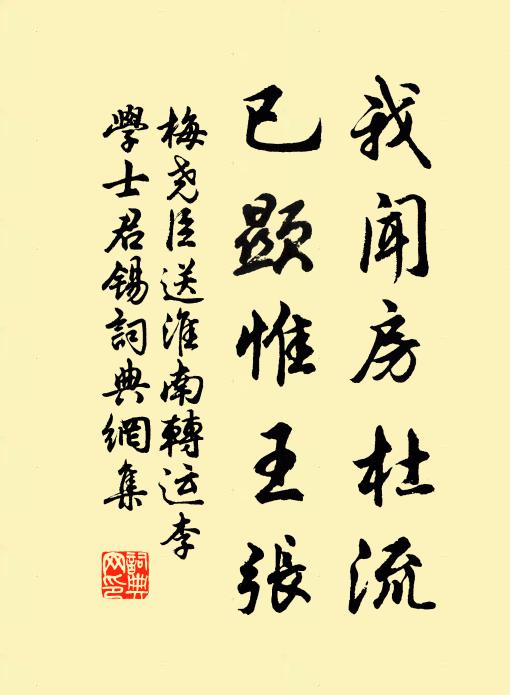 我闻房杜流
已顯惟王張
梅尧臣送淮南轉运李
學士君锡詞典網集
詞典網印